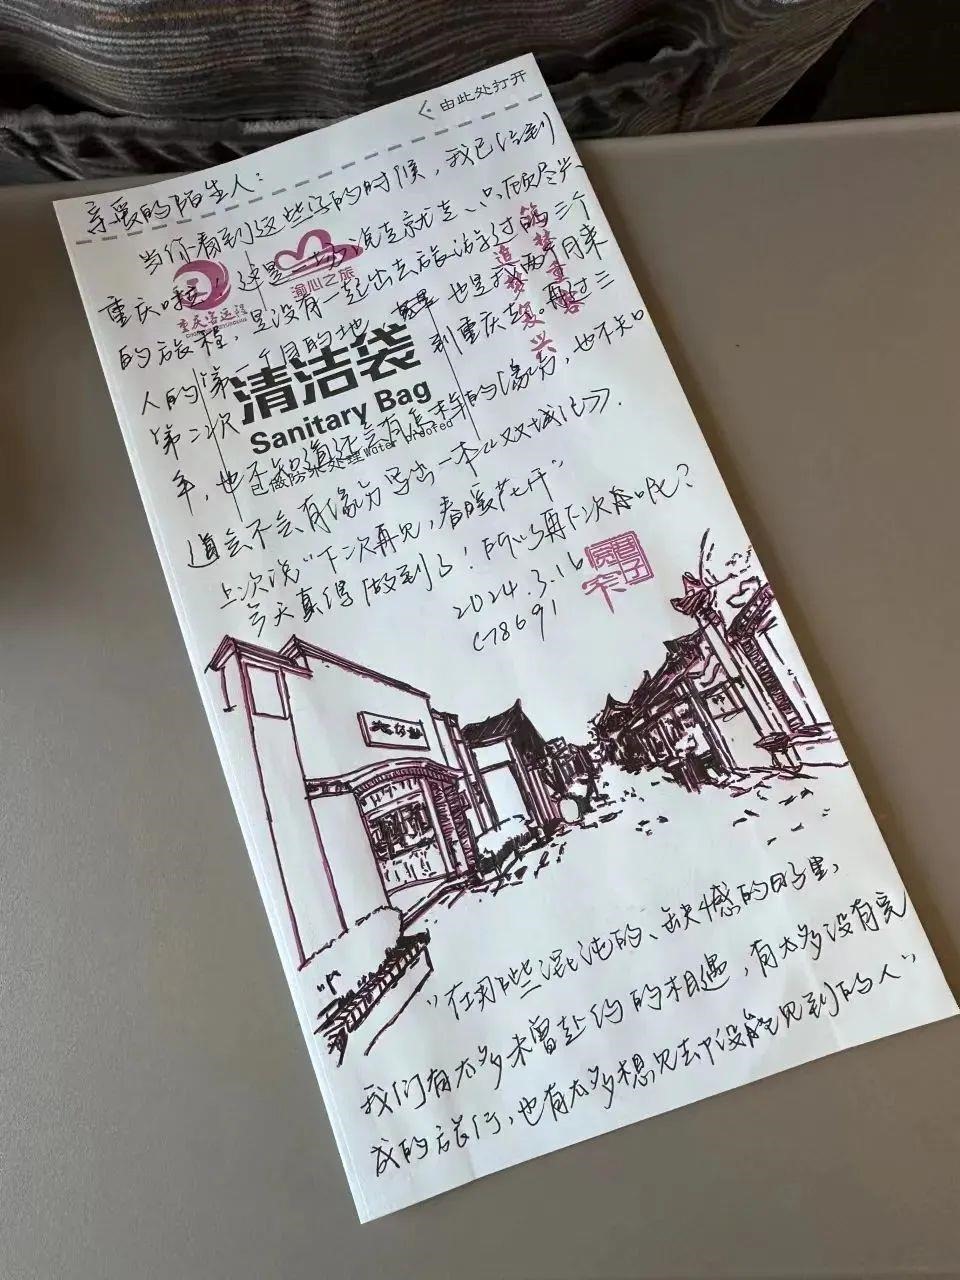 由此处打开
亲爱的陌生人：
当你看到这些字的时候，我已经到
重庆啦！这是一场说走就走、只顾尽兴
的旅程，是没有一起出去旅游过的三个
人的第一个目的地，也是我两个月来
第二次到重庆。再过三
年，也不知道还会有怎样的缘分，也不知
道会不会有缘分写出一本《双城记》.
上次说“下次再见，春暖花开”
今天真得做到了！所以再下次春吧？
2024.3.16
C78691
渝心之旅
重庆客运段
清洁袋
Sanitary Bag
已做防水处理Water proofed
筑梦重客
追梦复兴
“在那些混沌的、缺憾的日子里，
我们有太多未曾赴约的相遇，有太多没有完
成的旅行，也有太多想见却没能见到的人”